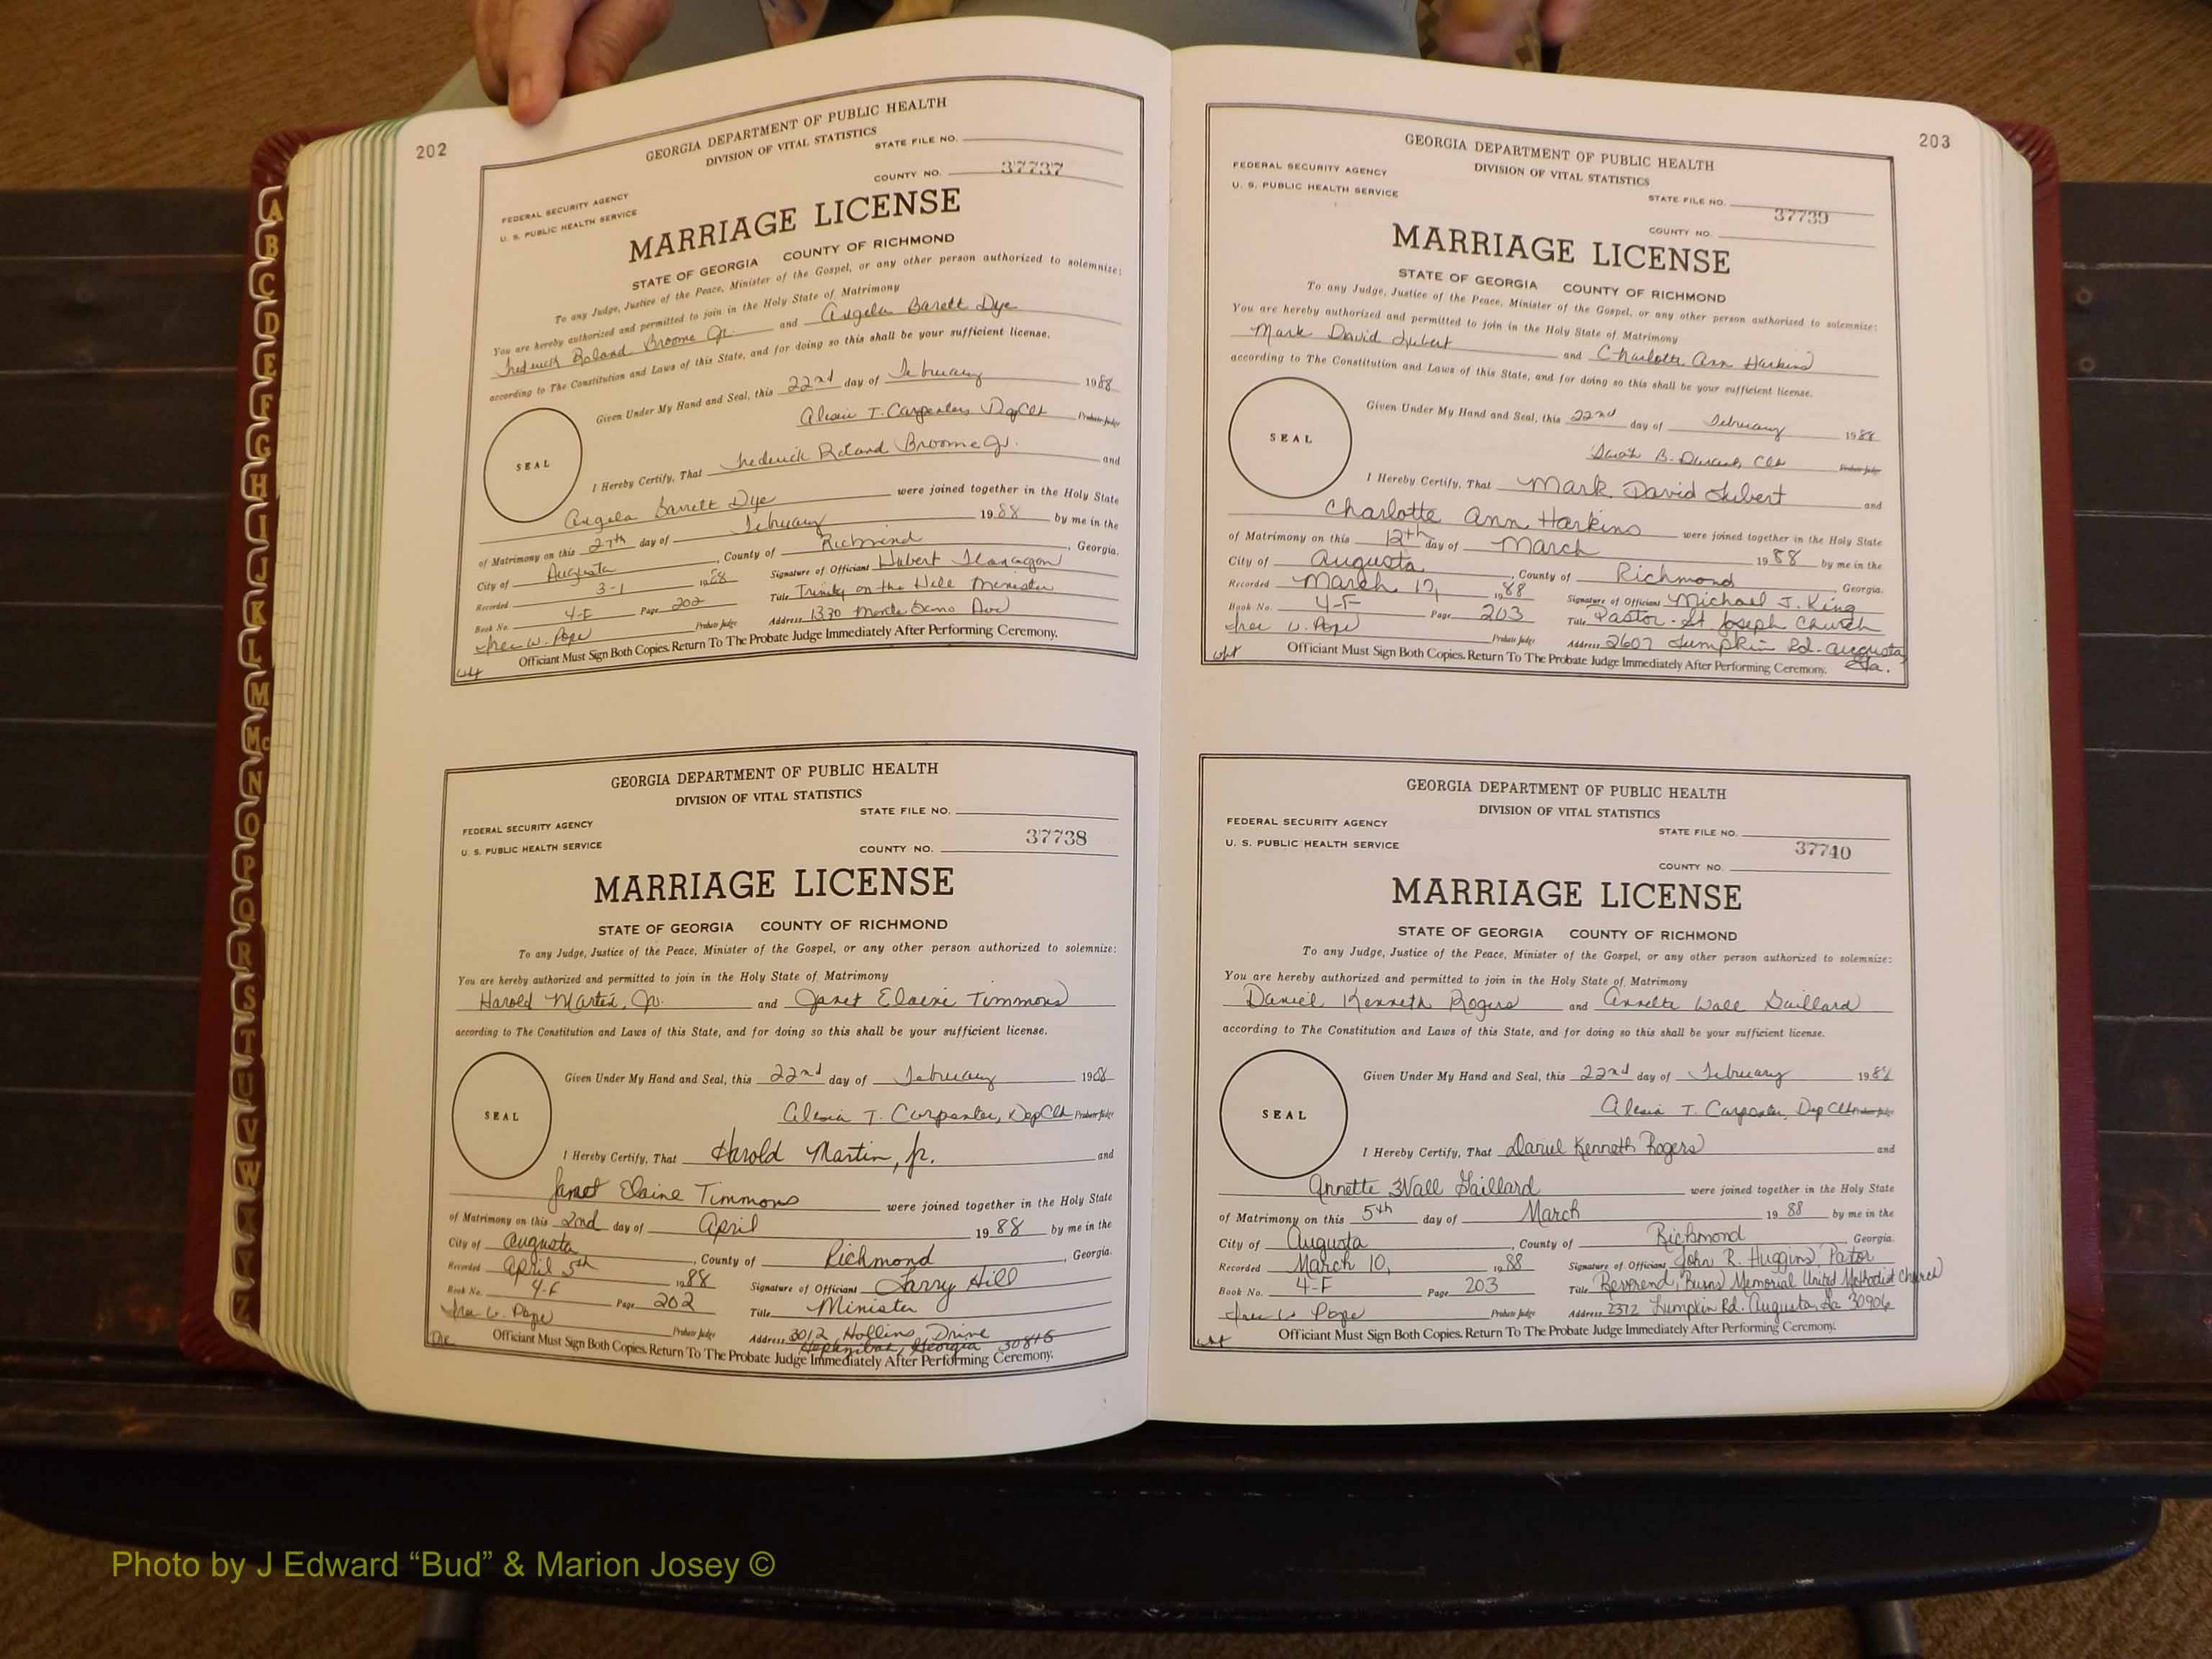 202
GEORGIA DEPARTMENT OF PUBLIC HEALTH
DIVISION OF VITAL STATISTICS
STATE FILE NO.
37737
COUNTY NO.
FEDERAL SECURITY AGENCY
U. S. PUBLIC HEALTH SERVICE
MARRIAGE LICENSE
STATE OF GEORGIA COUNTY OF RICHMOND
To any Judge, Justice of the Peace, Minister of the Gospel, or any other person authorized to solemnize:
You are hereby authorized and permitted to join in the Holy State of Matrimony
Frederick Roland Broome Jr. and Angela Barett Dye
according to The Constitution and Laws of this State, and for doing so this shall be your sufficient license.
Given Under My Hand and Seal, this 22nd day of February 1988
Alexia T. Carpenter, Dep Clk Probate Judge
SEAL
I Hereby Certify, That Frederick Roland Broome Jr. and
Angela Barrett Dye were joined together in the Holy State
of Matrimony on this 27th day of February 1988 by me in the
City of Augusta, County of Richmond, Georgia.
Recorded 3-1 1988 Signature of Officiant Hubert Flanagan
Book No. 4-F Page 202 Title Trinity on the Hill Minister
Probate Judge Address 1330 Monte Sano Ave
W. Pope
Officiant Must Sign Both Copies. Return To The Probate Judge Immediately After Performing Ceremony.
GEORGIA DEPARTMENT OF PUBLIC HEALTH
DIVISION OF VITAL STATISTICS
STATE FILE NO.
FEDERAL SECURITY AGENCY
37738
U. S. PUBLIC HEALTH SERVICE
COUNTY NO.
MARRIAGE LICENSE
STATE OF GEORGIA COUNTY OF RICHMOND
To any Judge, Justice of the Peace, Minister of the Gospel, or any other person authorized to solemnize:
You are hereby authorized and permitted to join in the Holy State of Matrimony
Harold Martin, Jr. and Janet Elaine Timmons
according to The Constitution and Laws of this State, and for doing so this shall be your sufficient license.
Given Under My Hand and Seal, this 22nd day of February 1988
Alexia T. Carpenter, Dep Clk Probate Judge
SEAL
I Hereby Certify, That Harold Martin, Jr. and
Janet Elaine Timmons were joined together in the Holy State
of Matrimony on this 2nd day of April 1988 by me in the
City of Augusta, County of Richmond, Georgia.
Recorded April 5th 1988 Signature of Officiant Larry Hill
Book No. 4-F Page 202 Title Minister
W. Pope Probate Judge Address 3012 Hollins Drive
Hephzibah, Georgia 30815
Officiant Must Sign Both Copies. Return To The Probate Judge Immediately After Performing Ceremony.
203
GEORGIA DEPARTMENT OF PUBLIC HEALTH
DIVISION OF VITAL STATISTICS
FEDERAL SECURITY AGENCY
U. S. PUBLIC HEALTH SERVICE
STATE FILE NO.
37739
COUNTY NO.
MARRIAGE LICENSE
STATE OF GEORGIA COUNTY OF RICHMOND
To any Judge, Justice of the Peace, Minister of the Gospel, or any other person authorized to solemnize:
You are hereby authorized and permitted to join in the Holy State of Matrimony
Mark David and Charlotte Ann Harkins
according to The Constitution and Laws of this State, and for doing so this shall be your sufficient license.
Given Under My Hand and Seal, this 22nd day of February 1988
B. Clk Probate Judge
SEAL
I Hereby Certify, That Mark David and
Charlotte Ann Harkins were joined together in the Holy State
of Matrimony on this 12th day of March 1988 by me in the
City of Augusta, County of Richmond Georgia.
Recorded March 1988 Signature of Officiant Michael J. King
Book No. 4-F Page 203 Title Pastor - St Joseph Church
W. Pope Probate Judge Address 2607 Lumpkin Rd - Augusta
Ga.
Officiant Must Sign Both Copies. Return To The Probate Judge Immediately After Performing Ceremony.
GEORGIA DEPARTMENT OF PUBLIC HEALTH
DIVISION OF VITAL STATISTICS
FEDERAL SECURITY AGENCY
STATE FILE NO.
U. S. PUBLIC HEALTH SERVICE
37740
COUNTY NO.
MARRIAGE LICENSE
STATE OF GEORGIA COUNTY OF RICHMOND
To any Judge, Justice of the Peace, Minister of the Gospel, or any other person authorized to solemnize:
You are hereby authorized and permitted to join in the Holy State of Matrimony
Daniel Kenneth Rogers and Annette Wall Gaillard
according to The Constitution and Laws of this State, and for doing so this shall be your sufficient license.
Given Under My Hand and Seal, this 22nd day of February 1988
Alexia T. Carpenter, Dep Clk Probate Judge
SEAL
I Hereby Certify, That Daniel Kenneth Rogers and
Annette Wall Gaillard were joined together in the Holy State
of Matrimony on this 5th day of March 1988 by me in the
City of Augusta, County of Richmond Georgia.
Recorded March 10, 1988 Signature of Officiant John R. Huggins, Pastor
Book No. 4-F Page 203 Title Reverend, Burns Memorial United Methodist Church
W. Pope Probate Judge Address 2372 Lumpkin Rd. Augusta, Ga 30906
Officiant Must Sign Both Copies. Return To The Probate Judge Immediately After Performing Ceremony.
A
B
C
D
E
F
G
H
I
J
K
L
M
Mc
N
O
P
Q
R
S
T
U
V
W
X
Y
Z
Photo by J Edward “Bud” & Marion Josey ©